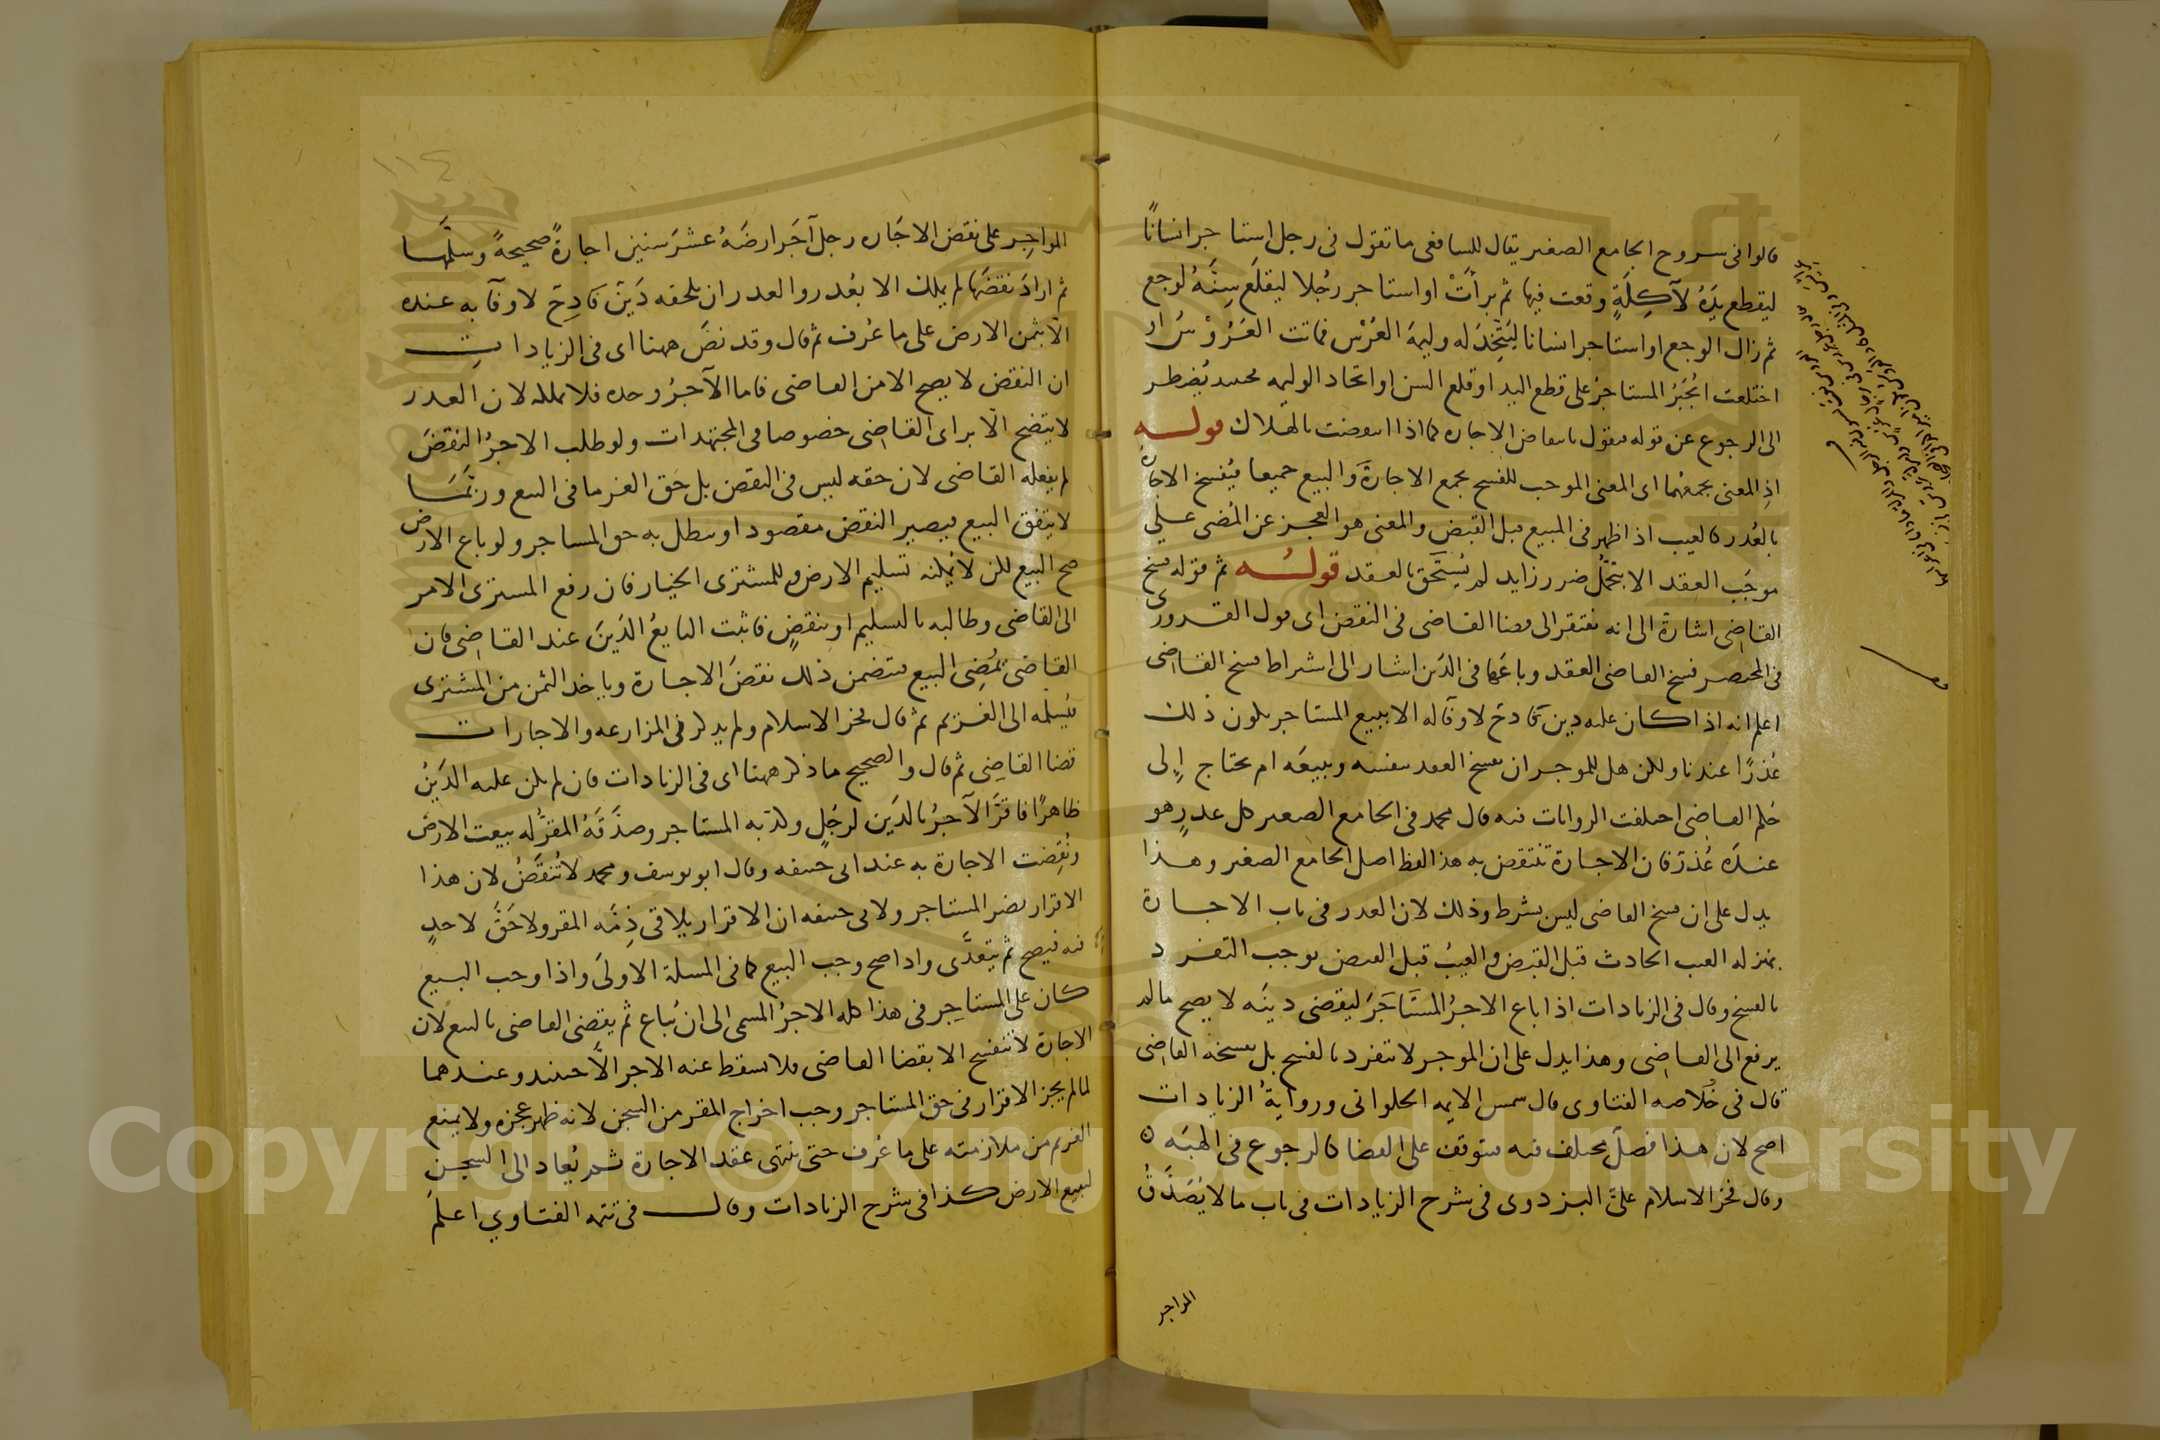 قالوا فى سروح الجامع الصغير يقال للسافعى ما تقول فى رجل استاجر انسانًا
ليقطع يَدَهُ لآكِلَةٍ وقعت فيها ثم برأتْ او استاجر رجُلا ليقلَع سِنَّهُ لوجع
ثم زال الوجع او استاجر انسانا ليَتَّخِذَ له وليمة العُرْس فماتت العَرُوْسُ او
اختلعت ايُجْبَرُ المستاجرُ على قطع اليد او قلع السن او اتخاد الوليمه فحينيد يُضطر
الى الرجوع عن قوله فيقول بانتقاض الاجاره كما اذا انتقضت بالهلاك قوله
اذِ المعنى يجمعُهُما اى المعنى الموجب للفسح يجمع الاجارةَ والبيع جميعا فيُفسخ الاجارة
بالعُدر كالعيب اذا ظهر فى المبيع قبل القبض والمعنى هو العجز عن المُضى على
موجَب العقد الا بتحمُّل ضرر زايد لم يُستَحق بالعقد قولُه ثم قوله فسخ
القاضى اشارة الى انه يفتقر الى قضا القاضى فى النقض اى قول القدورى
فى المختصر فسخ القاضى العقد وباعَها فى الدَين اشار الى اشتراط فسخ القاضى
اعلم انه اذا كان عليه دين كادحٌ لا وفآ له الا ببيع المستاجر يكون ذلك
عُذرًا عندنا ولكن هل للموجر ان يفسخ العقد بنفسه ويبيعَه ام يحتاج إلى
حُكم القاضى اختلفت الروايات فيه قال محمد فى الجامع الصغير كل عدرٍ هو
عندَه عُذرٌ فان الاجارة تنتقض به هذا لفظ اصل الجامع الصغير وهذا
يدل على ان فسخ القاضى ليس بشرط وذلك لان العدر فى باب الاجارة
بمنزله العيب الحادث قبل القبض والعيبُ قبل القبض يوجب التفرد
بالفسخ وقال فى الزيادات اذا باع الاجرُ المستَاجَرَ ليقضى دينَه لا يصح ما لم
يرفع الى القاضى وهذا يدل على ان الموجر لا ينفرد بالفسح بل يفسخه القاضى
قال فى خُلاصه الفتاوى قال سمس الايمه الحلوانى ورواية الزيادات
اصح لان هذا فصلٌ مختلف فيه فيتوقف على القضا كالرجوع فى الهبَه
وقال فخر الاسلام علىّ البزدوى فى شرح الزيادات فى باب ما لا يُصَدَّقُ
المواجر
المواجِر على نقض الاجَاره رجل آجَر ارضَهُ عشرَ سنين اجارةً صحيحةً وسلَّمها
ثم ارادَ نقضَها لم يملك الا بعُدر والعدر ان يلحقه دَينٌ كادِحٌ لا وفآ به عنده
الّا بثمن الارض على ما عُرف ثم قال وقد نصَّ ههنا اى فى الزيادات
ان النقض لا يصح الا من القاضى فاما الآجرُ وحده فلا يملكه لان العدر
لا يتضح الّا براى القاضى خصوصا فى المجتهدات ولو طلب الاجرُ النقضَ
لم يفعله القاضى لان حقه ليس فى النقض بل حَق الغرما فى البيع وربَّمَا
لا يتفق البيع فيصير النقض مقصودا وسطل به حق المستاجر ولو باع الارض
صح البيع لكن لا يُمكنه تسليم الارض وللمشترى الخيار فان رفع المسترى الامر
الى القاضى وطالبه بالتسليم او بنقضٍ فاثبت البايعُ الدَينَ عند القاضى فان
القاضى يُمضِى البيع فيتضمن ذلك نقضَ الاجارة وياخد الثمن من المشترى
فيُسلمه الى الغريم ثم قال فخر الاسلام ولم يدكر فى المزارعه والاجارات
قضا القاضِى ثم قال والصحيح ما ذكر ههنا اى فى الزيادات فان لم يكن عليه الدَينُ
ظاهرًا فاقرَّ الآجرُ بالدَين لرجُلٍ وكذبه المستاجر وصدَّقَهُ المقرُّ له بيعت الارضُ
ونُقِضت الاجارة به عند ابى حنيفه وقال ابو يوسف ومحمد لا تُنقَضُ لان هذا
الاقرار يضر المستاجر ولابى حنيفه ان الاقرار يلاقى ذِمَّه المقر ولا حَقَّ لاحدٍ
فيه فيصح ثم يتعدَّى واداصح وجب البيع كما فى المسلة الاولىَ واذا وجب البيع
كان على المستاجِر فى هذا كله الاجرُ المسمى الى ان يُباع ثم يقضى القاضى بالبيع لان
الاجارة لا تنفسح الا بقضا القاضى فلا يسقط عنه الاجر الّا حينيد وعندهما
لما لم يجز الاقرار فى حق المستاجر وجب اخراج المقر من السجن لانه ظهر عجزه ولا يمنع
الغريم من ملازمته على ما عُرف حتى تنتهى عقد الاجارة ثم يُعاد الى السجن
لبيع الارض كذا فى شرح الزيادات وقال فى تتمه الفتاوي اعلَم
Copyright © King Saud University